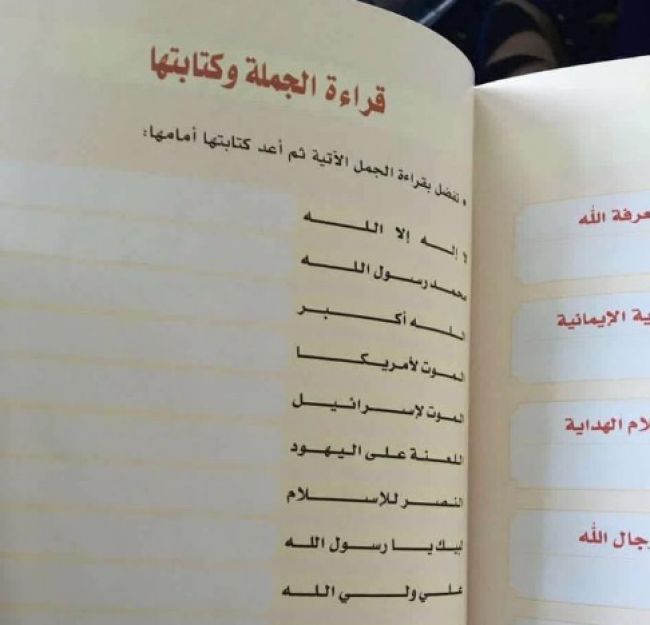 قراءة الجملة وكتابتها
• تفضل بقراءة الجمل الآتية ثم أعد كتابتها أمامها:
لا إله إلا الله
محمد رسول الله
الله أكبر
الموت لأمريكا
الموت لإسرائيل
اللعنة على اليهود
النصر للإسلام
لبيك يا رسول الله
علي ولي الله
الله
الإيمانية
الهداية
الله